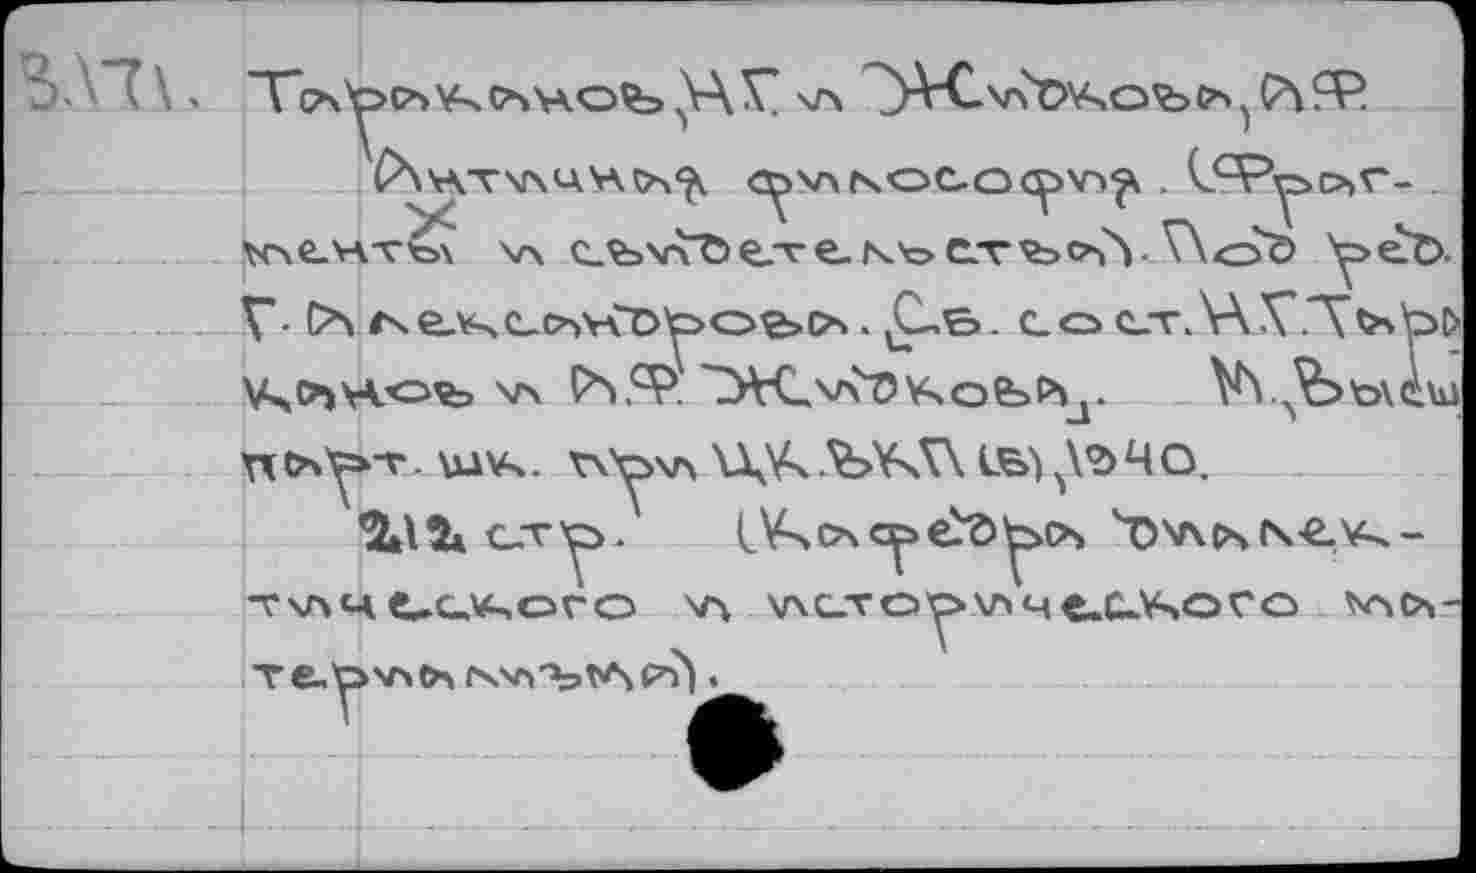 3.171. Тараканов, Н.Г. и Жидкова, А.Ф.
Античная философия. (Фраг-
менты и свидетельства). Под ред.
Г. Александрова. Сб. сост. Н.Г.Тара
канов и А.Ф. Жидкова. М., Высш
парт. шк. при ЦК.ВКП(б), 1940.
212 стр. (Кафедра диалек-
тического и исторического ма-
териализма).